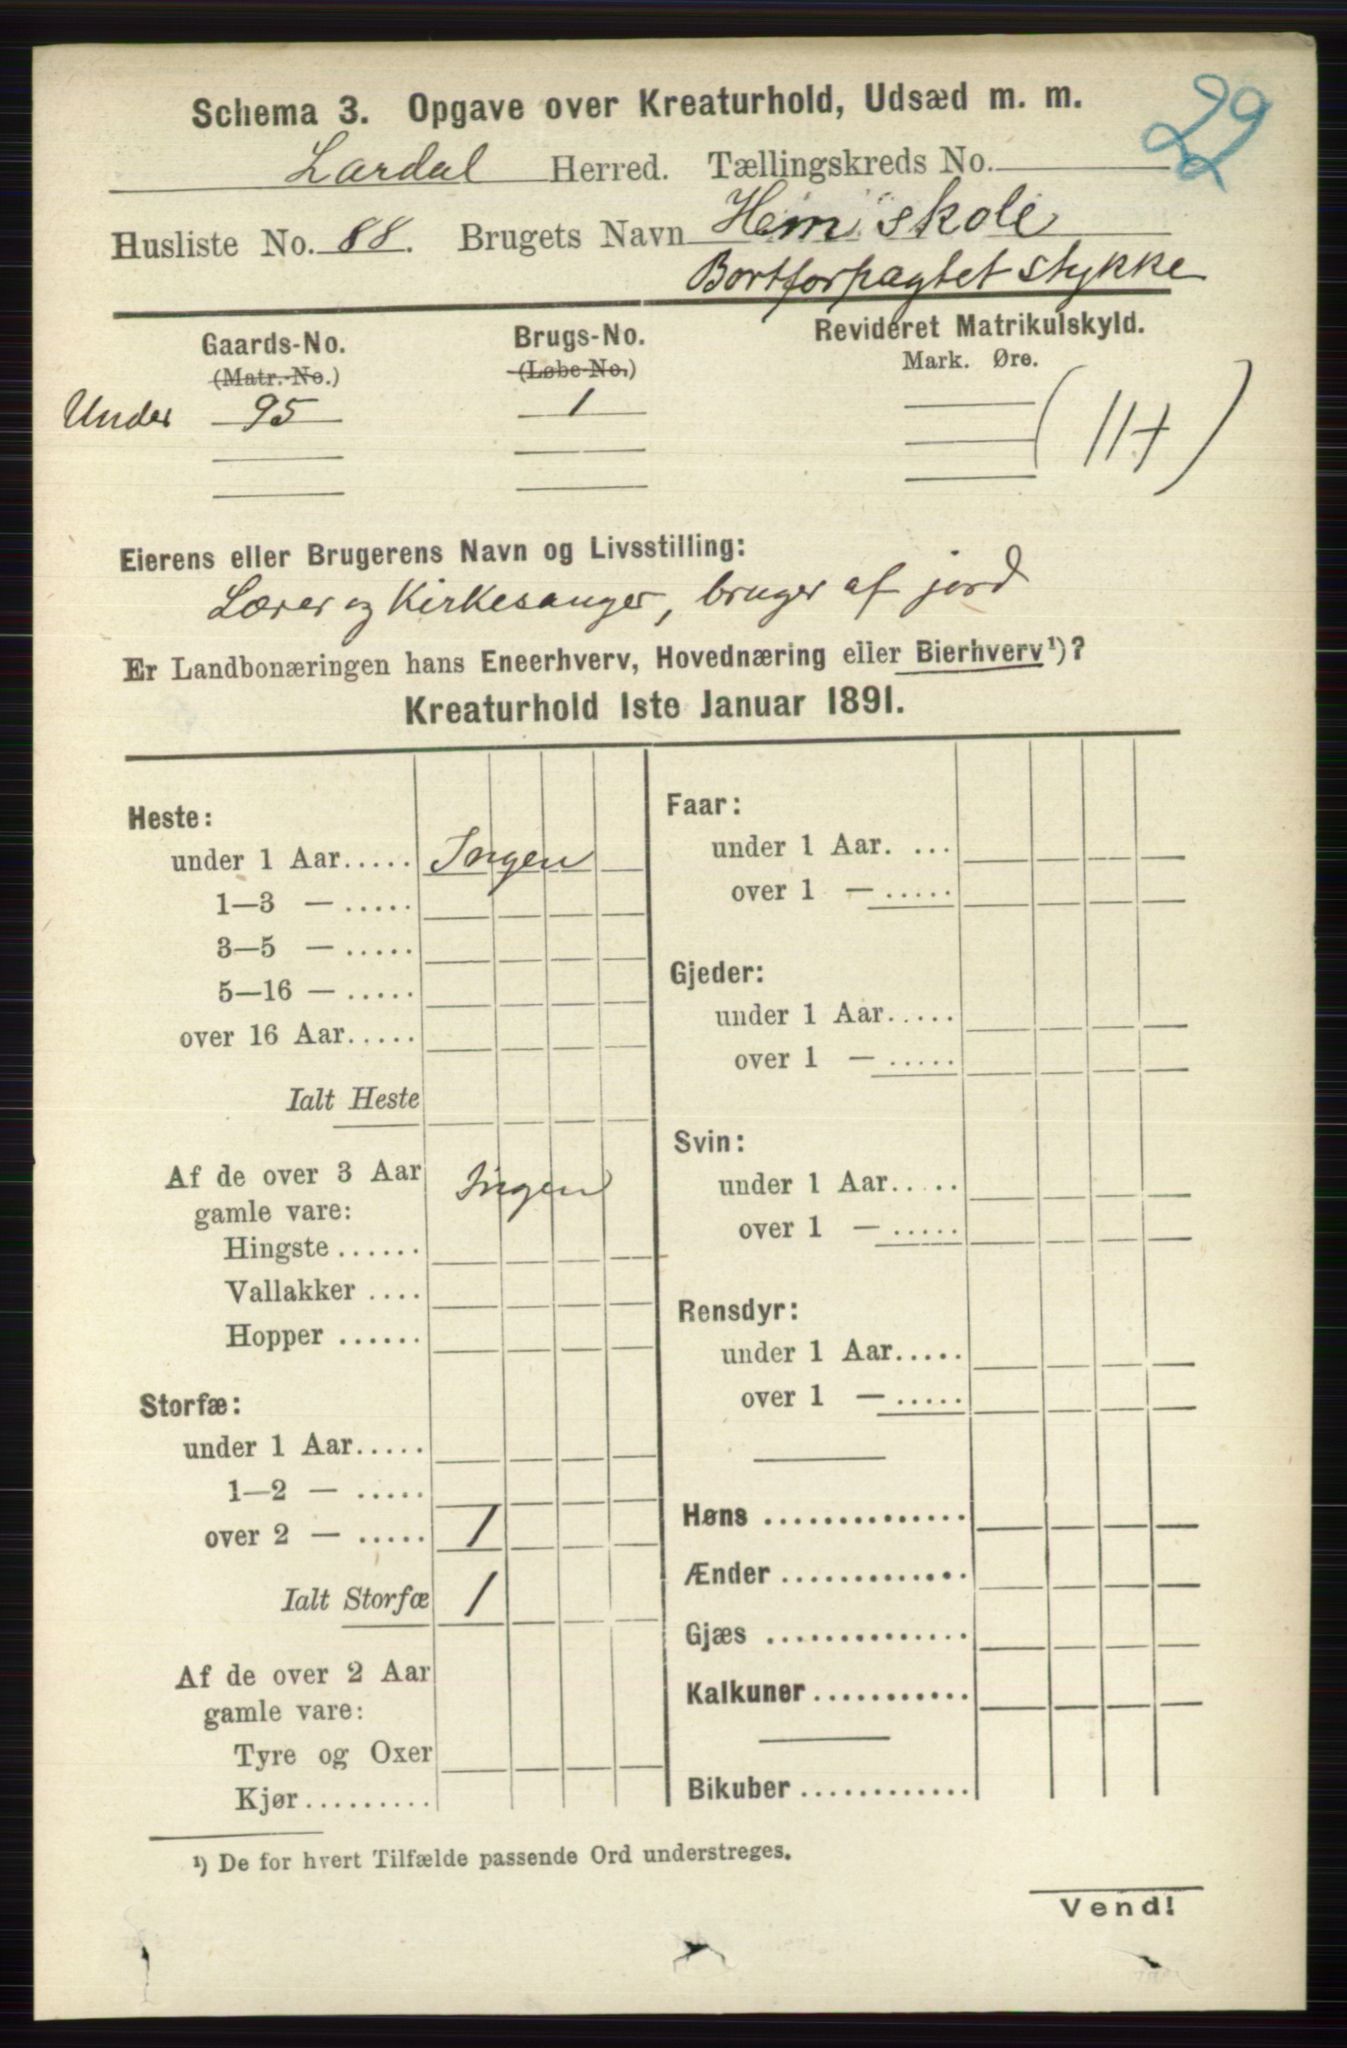 Schema 3. Opgave over Kreaturhold, Udsæd m. m.
29
Lardal Herred. Tællingskreds No.
Husliste No. 88. Brugets Navn Hem skole
Bortforpagtet stykke
Gaards-No. Brugs-No. Revideret Matrikulskyld.
(Matr.-No.) (Løbe-No.) Mark. Øre.
Under 95 1
Eierens eller Brugerens Navn og Livsstilling:
Lærer og Kirkesanger, bruger af jord
Er Landbonæringen hans Eneerhverv, Hovednæring eller Bierhverv¹)?
Kreaturhold 1ste Januar 1891.
Heste:
under 1 Aar..... Ingen
1—3 — .....
3—5 — .....
5—16 — .....
over 16 Aar.....
Ialt Heste
Af de over 3 Aar Ingen
gamle vare:
Hingste ......
Vallakker ....
Hopper ......
Storfæ:
under 1 Aar.....
1—2 — .....
over 2 — ..... 1
Ialt Storfæ 1
Af de over 2 Aar
gamle vare:
Tyre og Oxer
Kjør.........
Faar:
under 1 Aar. ...
over 1 — .....
Gjeder:
under 1 Aar.....
over 1 — .....
Svin:
under 1 Aar.....
over 1 — .....
Rensdyr:
under 1 Aar.....
over 1 — .....
Høns ..............
Ænder .............
Gjæs ..............
Kalkuner...........
Bikuber ............
¹) De for hvert Tilfælde passende Ord understreges.
Vend!